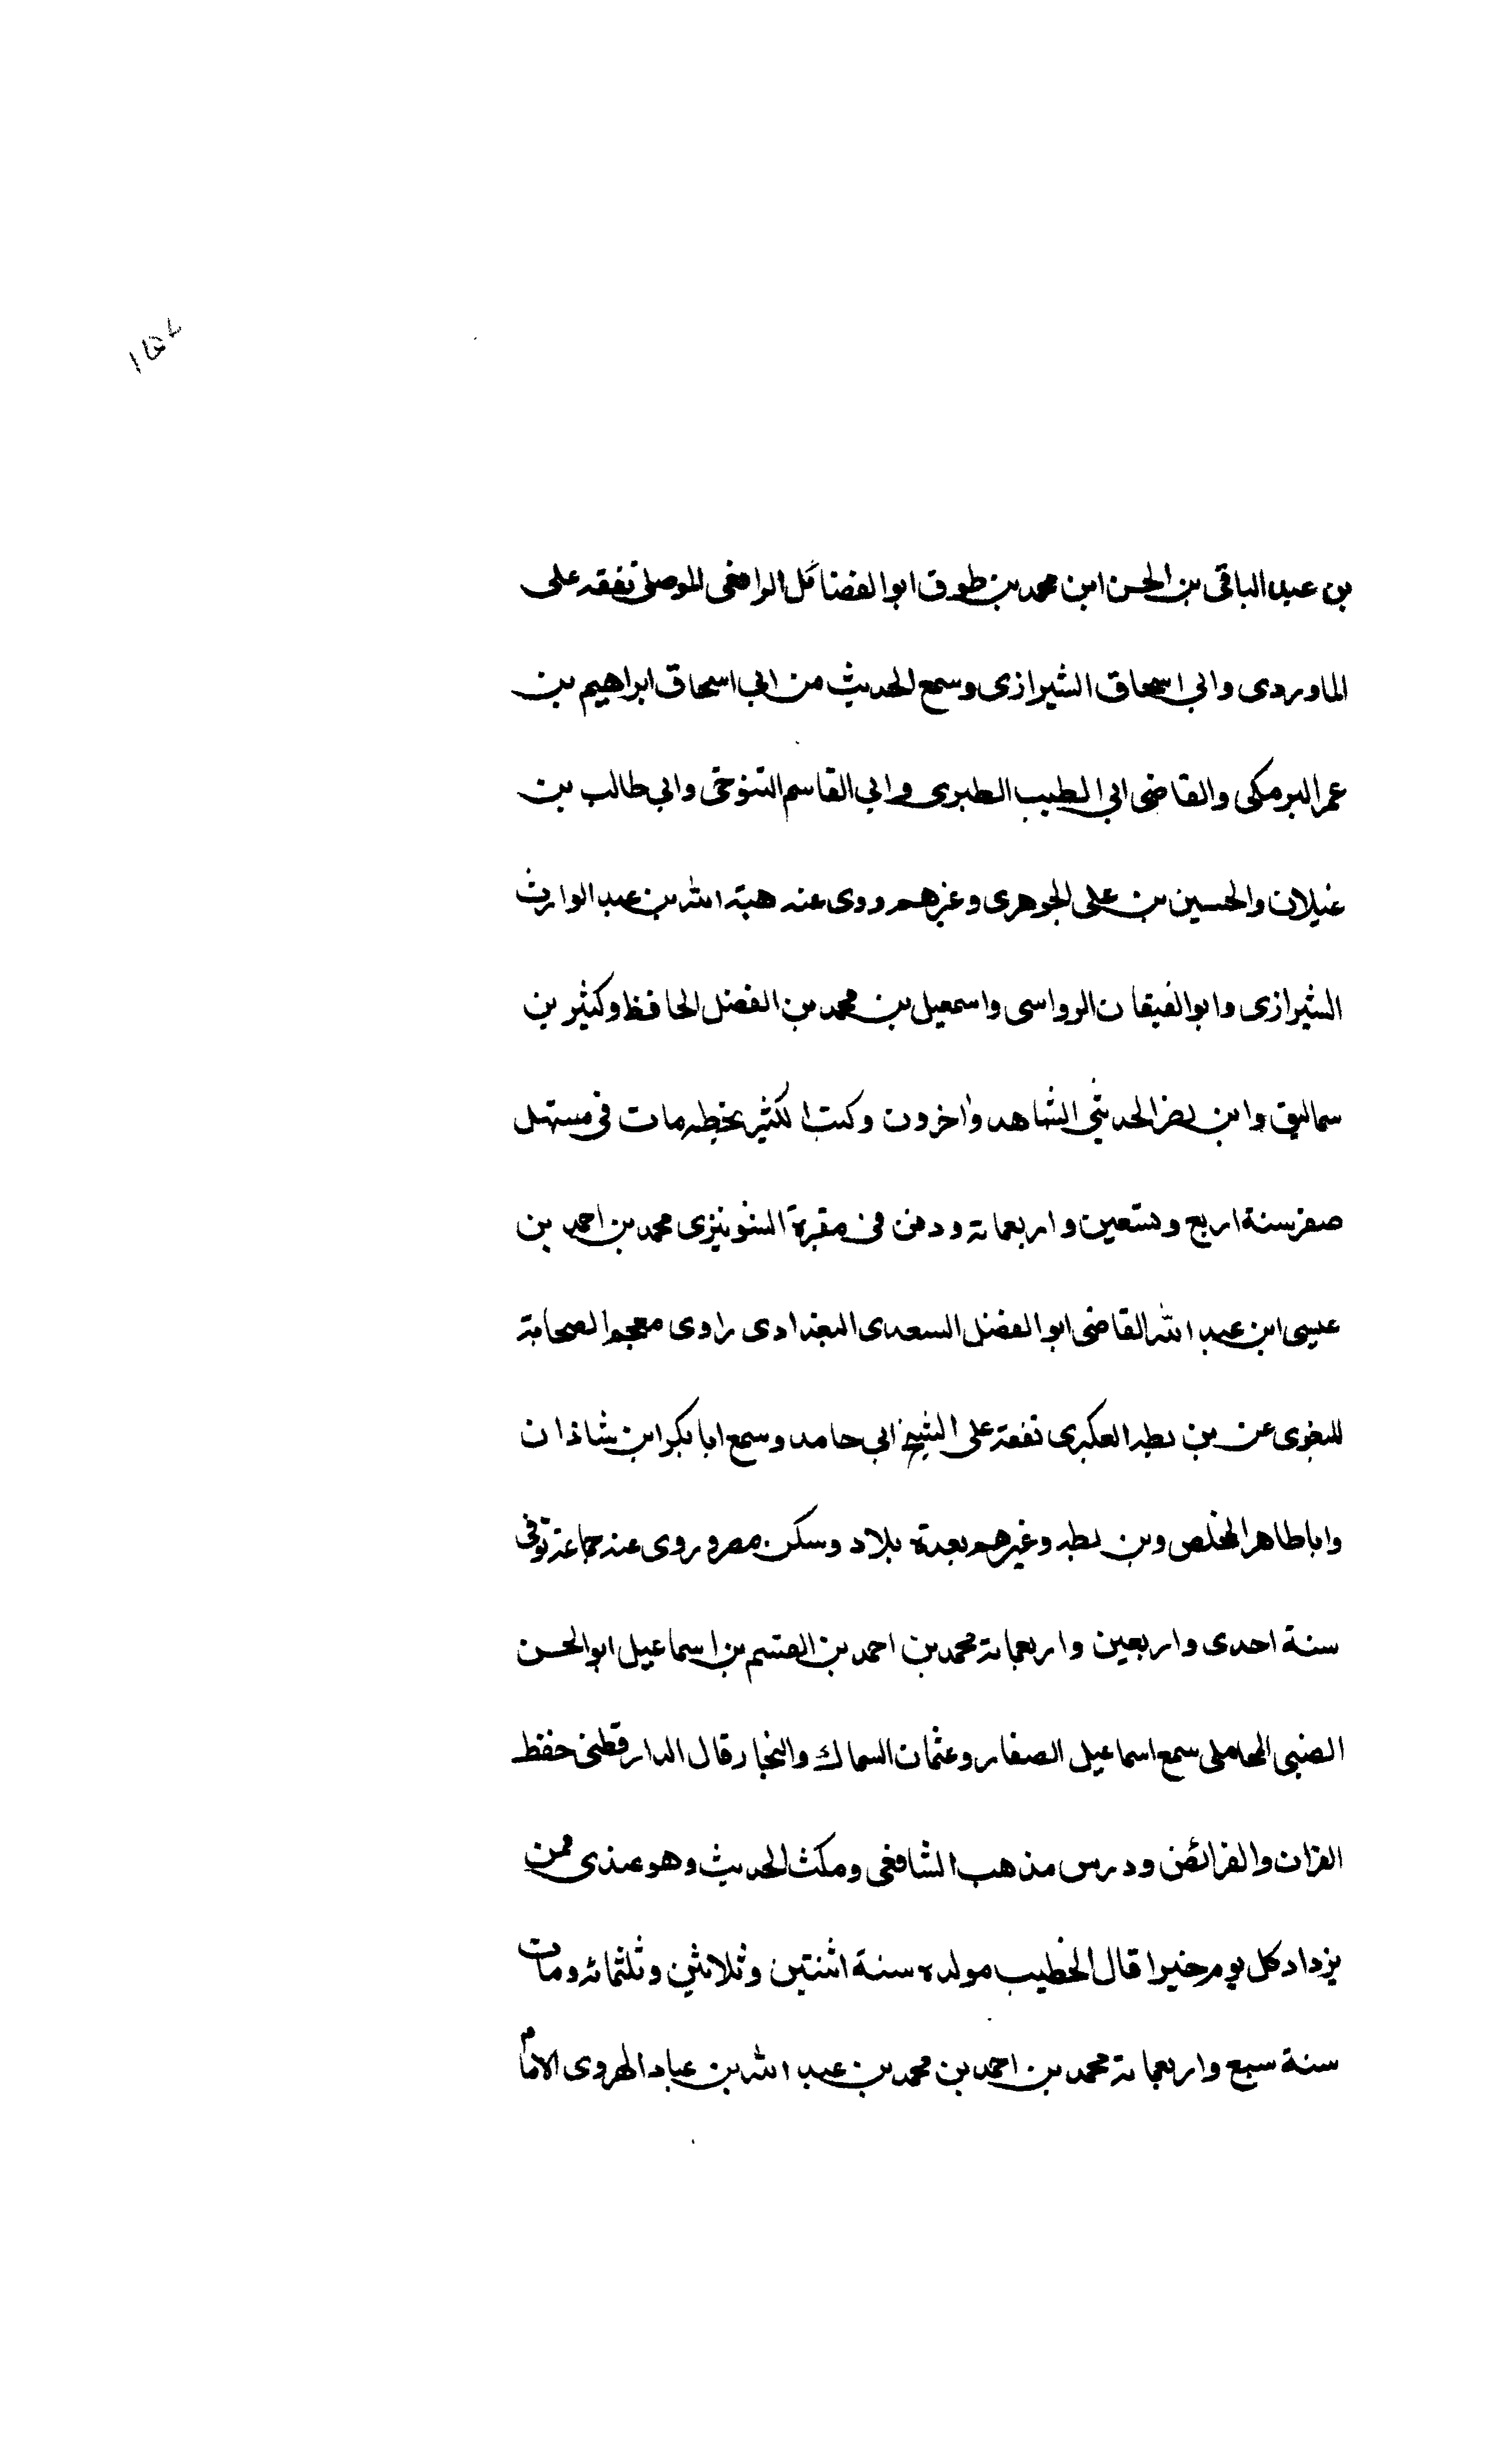 ١٥٧
بن عبد الباقى بن الحسن ابن محمد بن طوق ابو الفضائل الرافعى الموصلى تفقه على
الماوردى وابى اسحاق الشيرازى وسمع الحديث من ابى اسحاق ابراهيم بن
عمر البرمكى والقاضى ابى الطيب الطبرى وابى القاسم التنوخى وابى طالب بن
غيلان والحسين بن على الجوهرى وغيرهم روى عنه هبة الله بن عبد الوارث
الشيرازى وابو الفيقان الرواسى واسمعيل بن محمد بن الفضل الحافظ وكثير بن
سماليق وابن نصر الحديثى الشاهد واخرون وكتب الكثير بخطه مات فى مستهل
صفر سنة اربع وتسعين واربعماتة ودفن فى مقبرة الشونيزى محمد بن احمد بن
عيسى ابن عبد الله القاضى ابو الفضل السعدى البغدادى راوى معجم الصحابة
للبغوى عن بن بطه العكبرى تفقه على الشيخ ابى حامد وسمع ابا بكر ابن شاذان
وابا طاهر المخلص وبن بطه وغيرهم بعدة بلاد وسكن مصر وروى عنه جماعة توفى
سنة احدى واربعين واربعماتة محمد بن احمد بن القسم بن اسماعيل ابو الحسن
الضبى المحاملى سمع اسماعيل الصفار وعثمان السماك والنجار قال الدارقطنى حفظ
القران والفرائض ودرس مذهب الشافعى ومكث الحديث وهو عندى ممن
يزداد كل يوم خيرا قال الخطيب مولده سنة اثنتين وثلاثين وثلثمائه ومات
سنة سبع واربعماتة محمد بن احمد بن محمد بن عبد الله بن عباد الهروى الامام